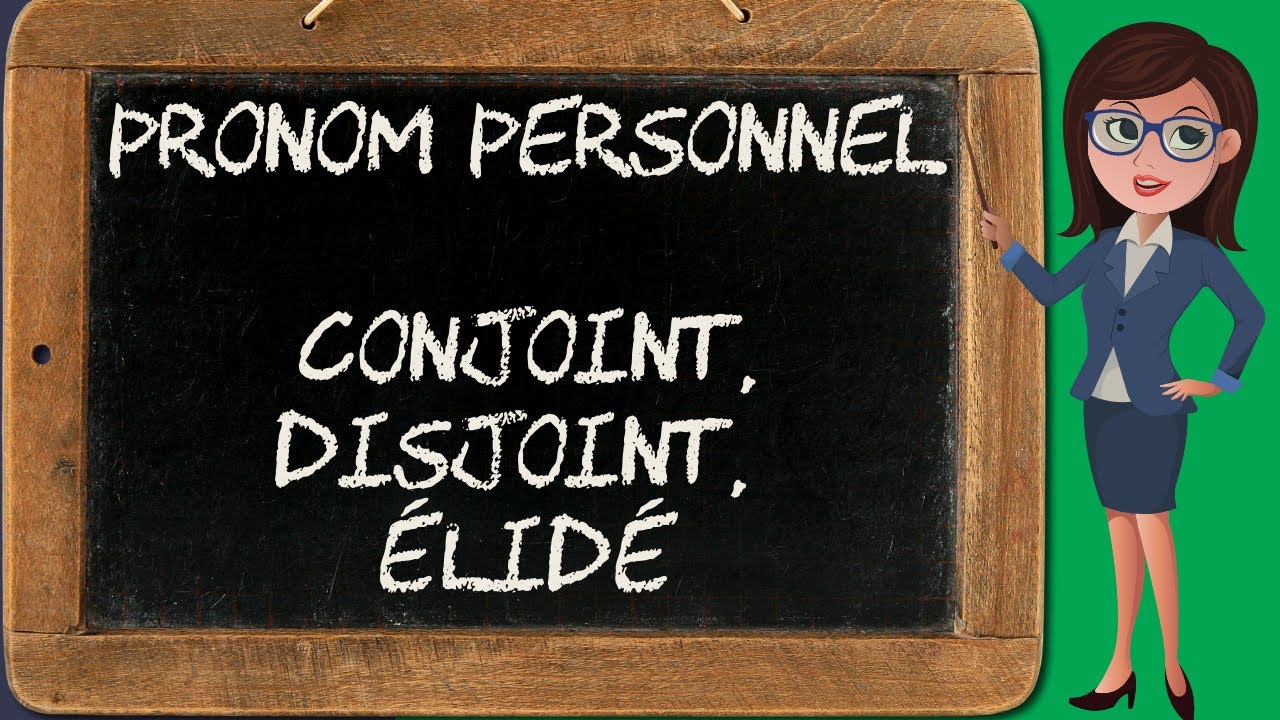 PRONOM PERSONNEL
CONJOINT,
DISJOINT,
ÉLIDÉ